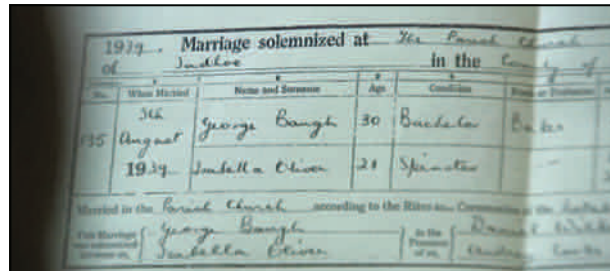 1939. Marriage solemnized at The Parish Church
of in the County of
No. When Married Name and Surname Age Condition Rank or Profession
5th
135 August George Baugh 30 Bachelor Baker
1939 Isabella Oliver 21 Spinster —
Married in the Parish Church according to the Rites
This Marriage was solemnized between us, George Baugh
Isabella Oliver
in the Presence of us,